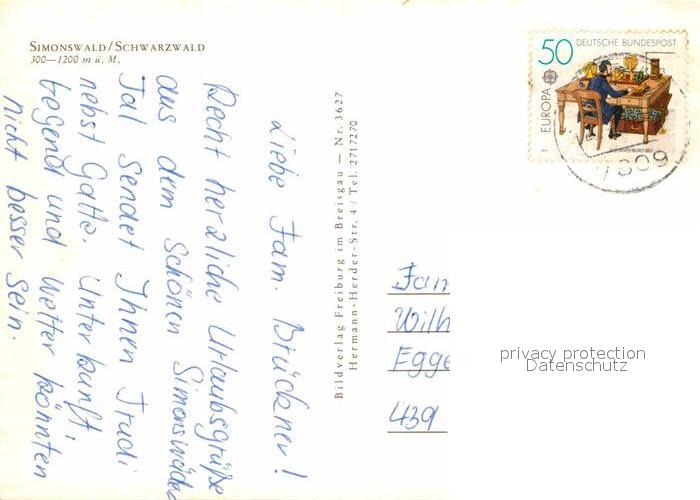 SIMONSWALD/SCHWARZWALD
300—1200 m ü. M.
Liebe Fam. Brückner!
Recht herzliche Urlaubsgrüße
aus dem Schönen Simonswälder
Tal sendet Ihnen Trudi
nebst Gatte. Unterkunft,
Gegend und Wetter könnten
nicht besser sein.
Bildverlag Freiburg im Breisgau — Nr. 3627
Hermann-Herder-Str. 4 / Tel. 2717270
50 DEUTSCHE BUNDESPOST
EUROPA
7809
Fam
Wilh
Egge
439
privacy protection
Datenschutz